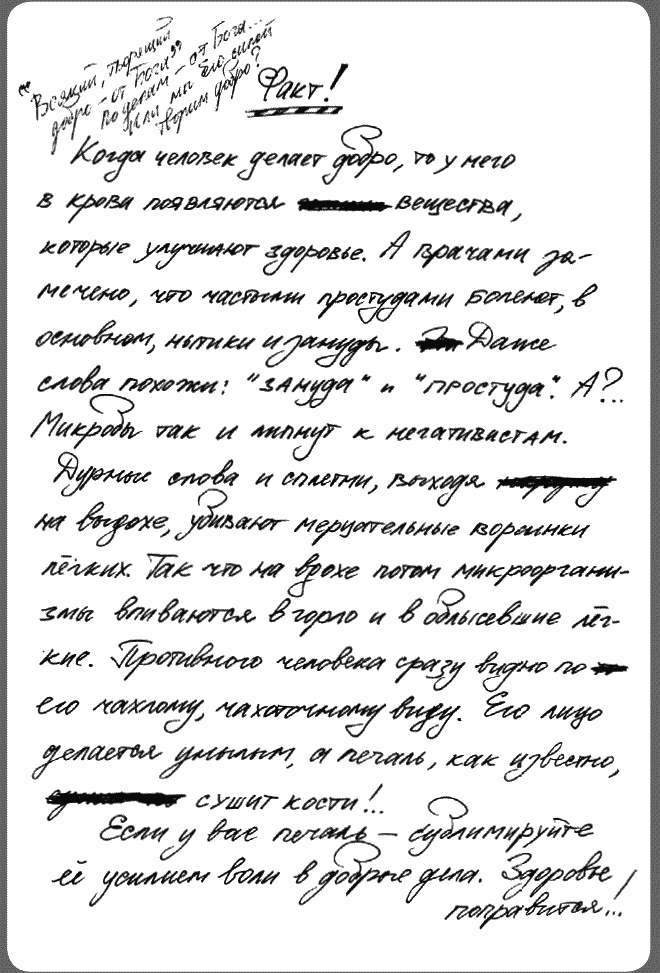 "Всякий, творящий
добро – от Бога"
По делам – от Бога...
Или мы его силой
творим добро?
Факт!
Когда человек делает добро, то у него
в крови появляются вещества,
которые улучшают здоровье. А врачами за-
мечено, что частыми простудами болеют, в
основном, нытики и зануды. Даже
слова похожи: "зануда" и "простуда". А?..
Микробы так и липнут к негативистам.
Дурные слова и сплетни, выходя
на выдохе, убивают мерцательные ворсинки
лёгких. Так что на вдохе потом микрооргани-
змы впиваются в горло и в облысевшие лёг-
кие. Противного человека сразу видно по
его чахлому, чахоточному виду. Его лицо
делается унылым, а печаль, как известно,
сушит кости!..
Если у вас печаль – сублимируйте
её усилием воли в добрые дела. Здоровье
поправится...!